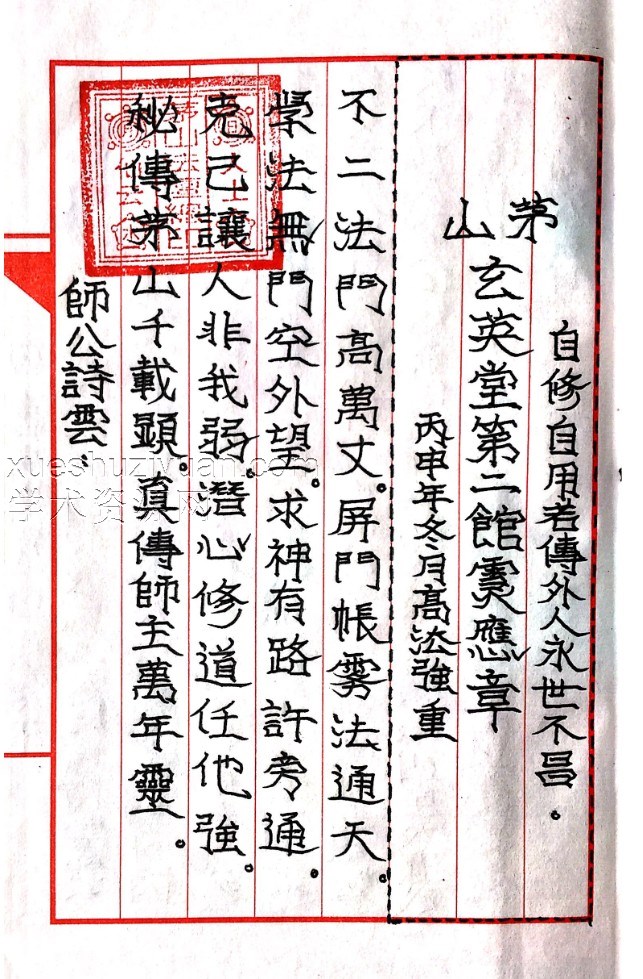 自修自用若傳外人永世不昌。
茅山
玄英堂第二館靈應章
丙申年冬月高法強重
不二法門高萬丈。屏門帳雾法通天。
學法無門空外望。求神有路許旁通。
克己讓人非我弱。潛心修道任他強。
秘傳茅山千載顯。真傳師主萬年靈。
師公詩雲、
xueshuziyuan.com
学术资源网